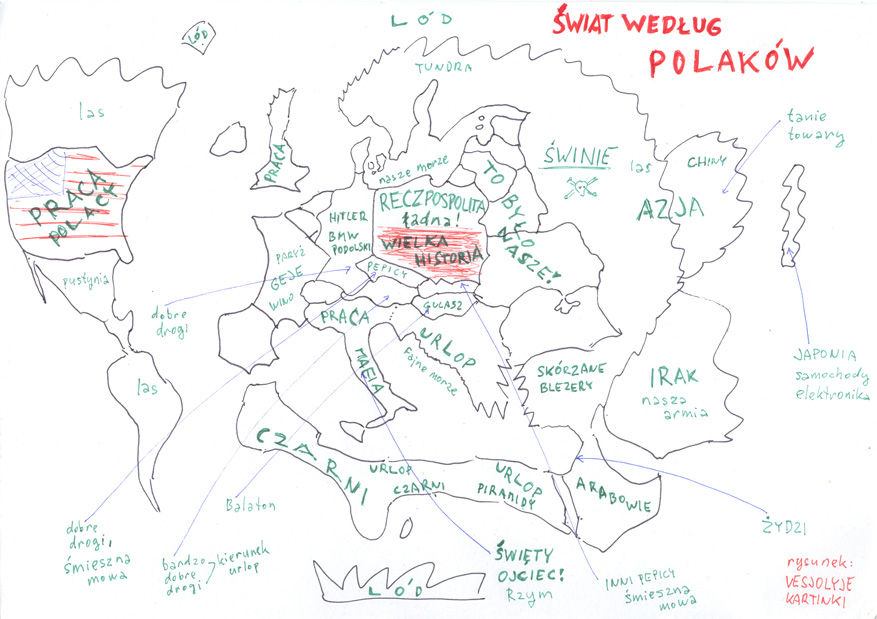 LÓD
LÓD
ŚWIAT WEDŁUG
POLAKÓW
TUNDRA
las
tanie
towary
PRACA
nasze morze
TO
BYŁO
NASZE!
ŚWINIE
las
CHINY
AZJA
PRACA
POLACY
HITLER
BMW
PODOLSKI
RECZPOSPOLITA
Ładna!
WIELKA
HISTORIA
PARYŻ
GEJE
WINO
pustynia
PEPICY
GULASZ
dobre
drogi
PRACA
MAFIA
URLOP
Fajne morze
SKÓRZANE
BLEZERY
IRAK
nasza
armia
JAPONIA
samochody
elektronika
las
CZARNI
URLOP
CZARNI
URLOP
PIRAMIDY
ARABOWIE
Balaton
ŻYDZI
dobre
drogi,
śmieszna
mowa
bardzo
dobre
drogi
kierunek
urlop
ŚWIĘTY
OJCIEC!
Rzym
INNI PEPICY
śmieszna
mowa
LÓD
rysunek:
VESJOLYJE
KARTINKI